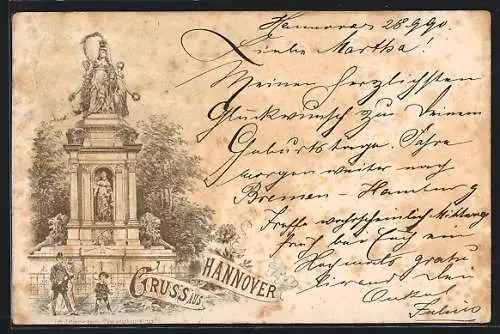 Hannover 28.9.90.
Liebe Martha!
Meinen herzlichsten
Glückwunsch zu Deinem
Geburtstage. Fahre
morgen weiter nach
Bremen - Hamburg
Treffe wahrscheinlich Mittwoch
früh bei Euch ein
Nochmals gratu
lierend Dein
Onkel
GRUSS AUS
HANNOVER